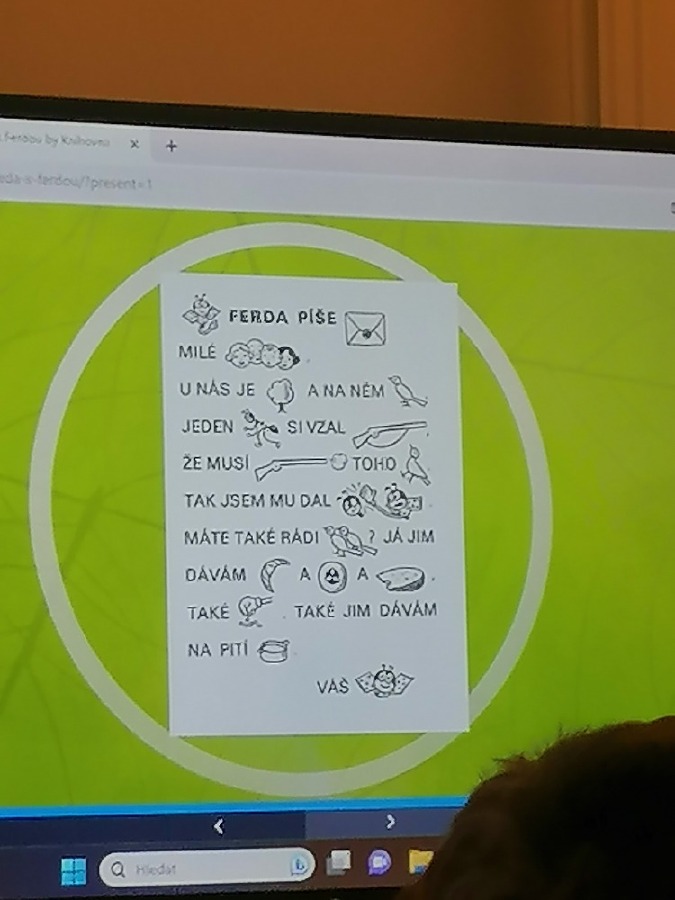 Ferdou by Knihovna
eda-s-ferdou/?present=1
FERDA PÍŠE
MILÉ
U NÁS JE A NA NĚM
JEDEN SI VZAL
ŽE MUSÍ TOHO
TAK JSEM MU DAL
MÁTE TAKÉ RÁDI ? JÁ JIM
DÁVÁM A A .
TAKÉ . TAKÉ JIM DÁVÁM
NA PITÍ .
VÁŠ
Hledat